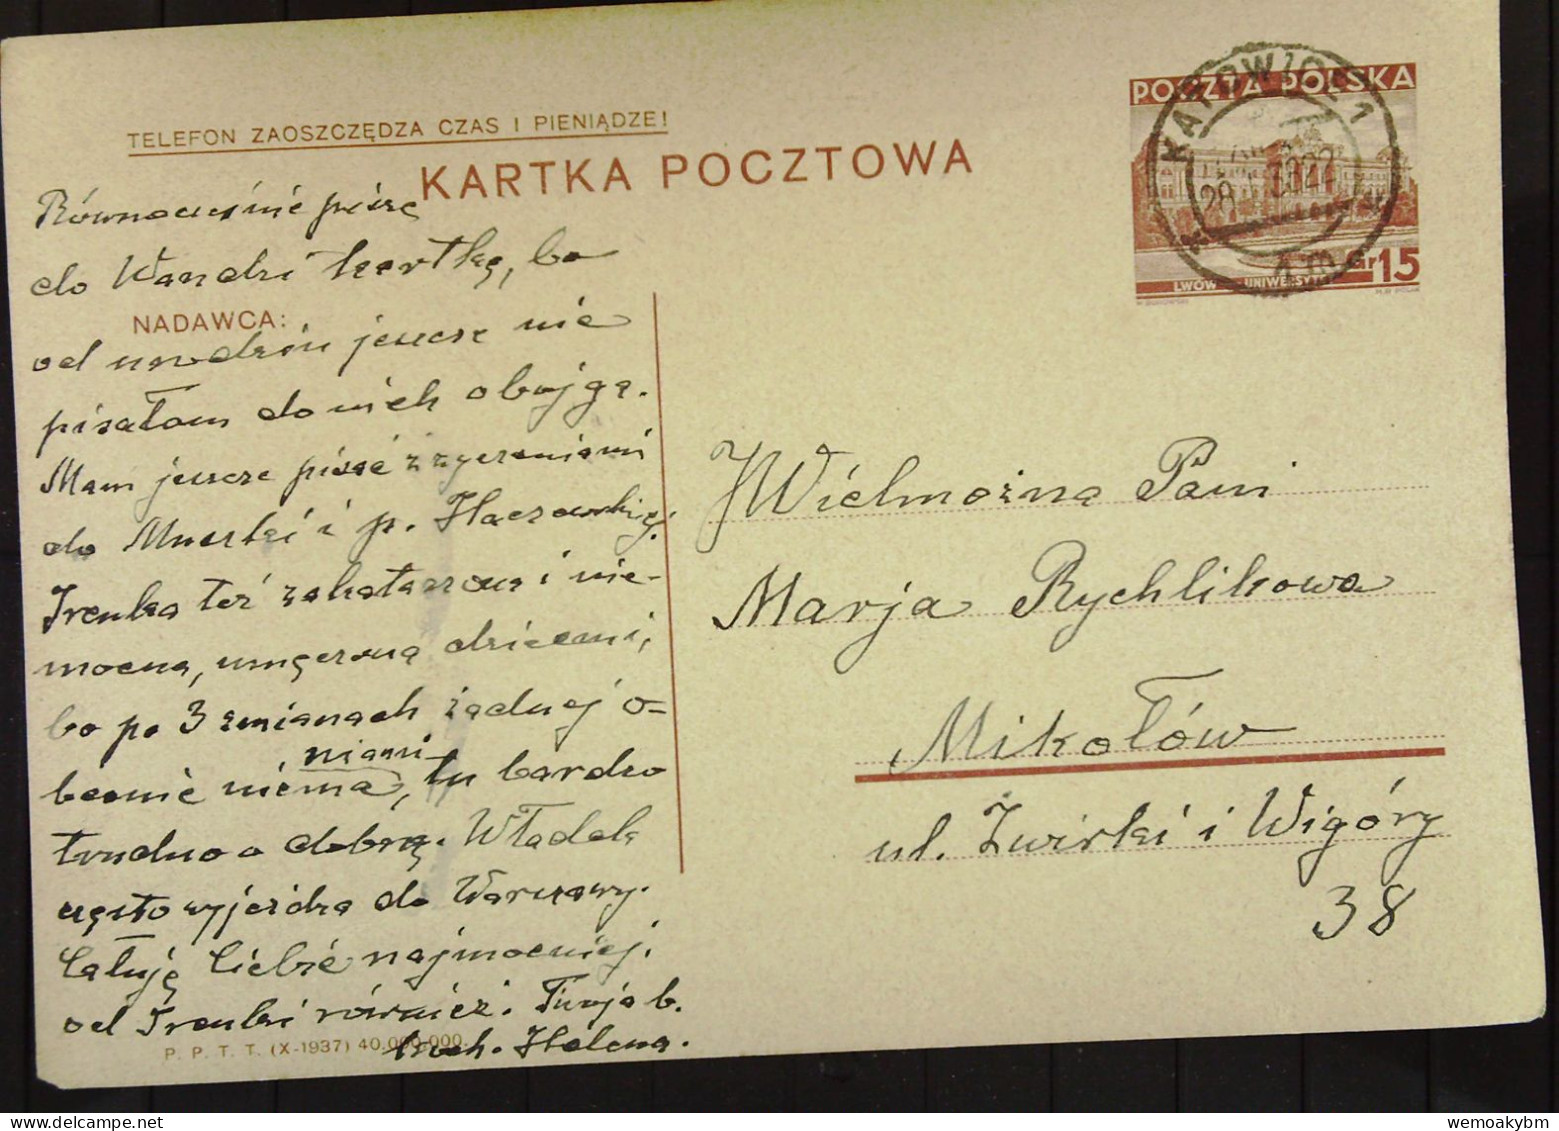 TELEFON ZAOSZCZĘDZA CZAS I PIENIĄDZE!
KARTKA POCZTOWA
POCZTA POLSKA
KATOWICE 1
28
Gr 15
LWÓW - UNIWERSYTET
Równocześnie piszę
do Wandzi kartkę, bo
NADAWCA:
od urodzin jeszcze nie
pisałam do nich obojga.
Mam jeszcze pisać z życzeniami
do i p.
Irenka też zakatarzona i nie-
mocna, umęczona dziećmi,
bo po 3 zmianach żadnej o-
becnie niema, tu bardzo
niami
trudno o dobrą. Władek
często wyjeżdża do Warszawy.
Całuję Ciebie najmocniej,
od Irenki również. Twoja b.
koch. Helena.
P. P. T. T. (X-1937) 40.000.000.
JWielmożna Pani
Marja Rychlikowa
Mikołów
ul. Żwirki i Wigóry
38
www.delcampe.net
wemoakybm